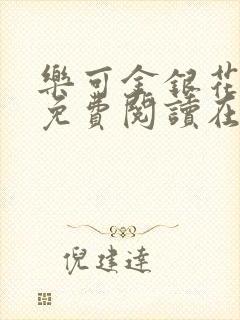 樂可金銀花
免費閱讀在
倪建達